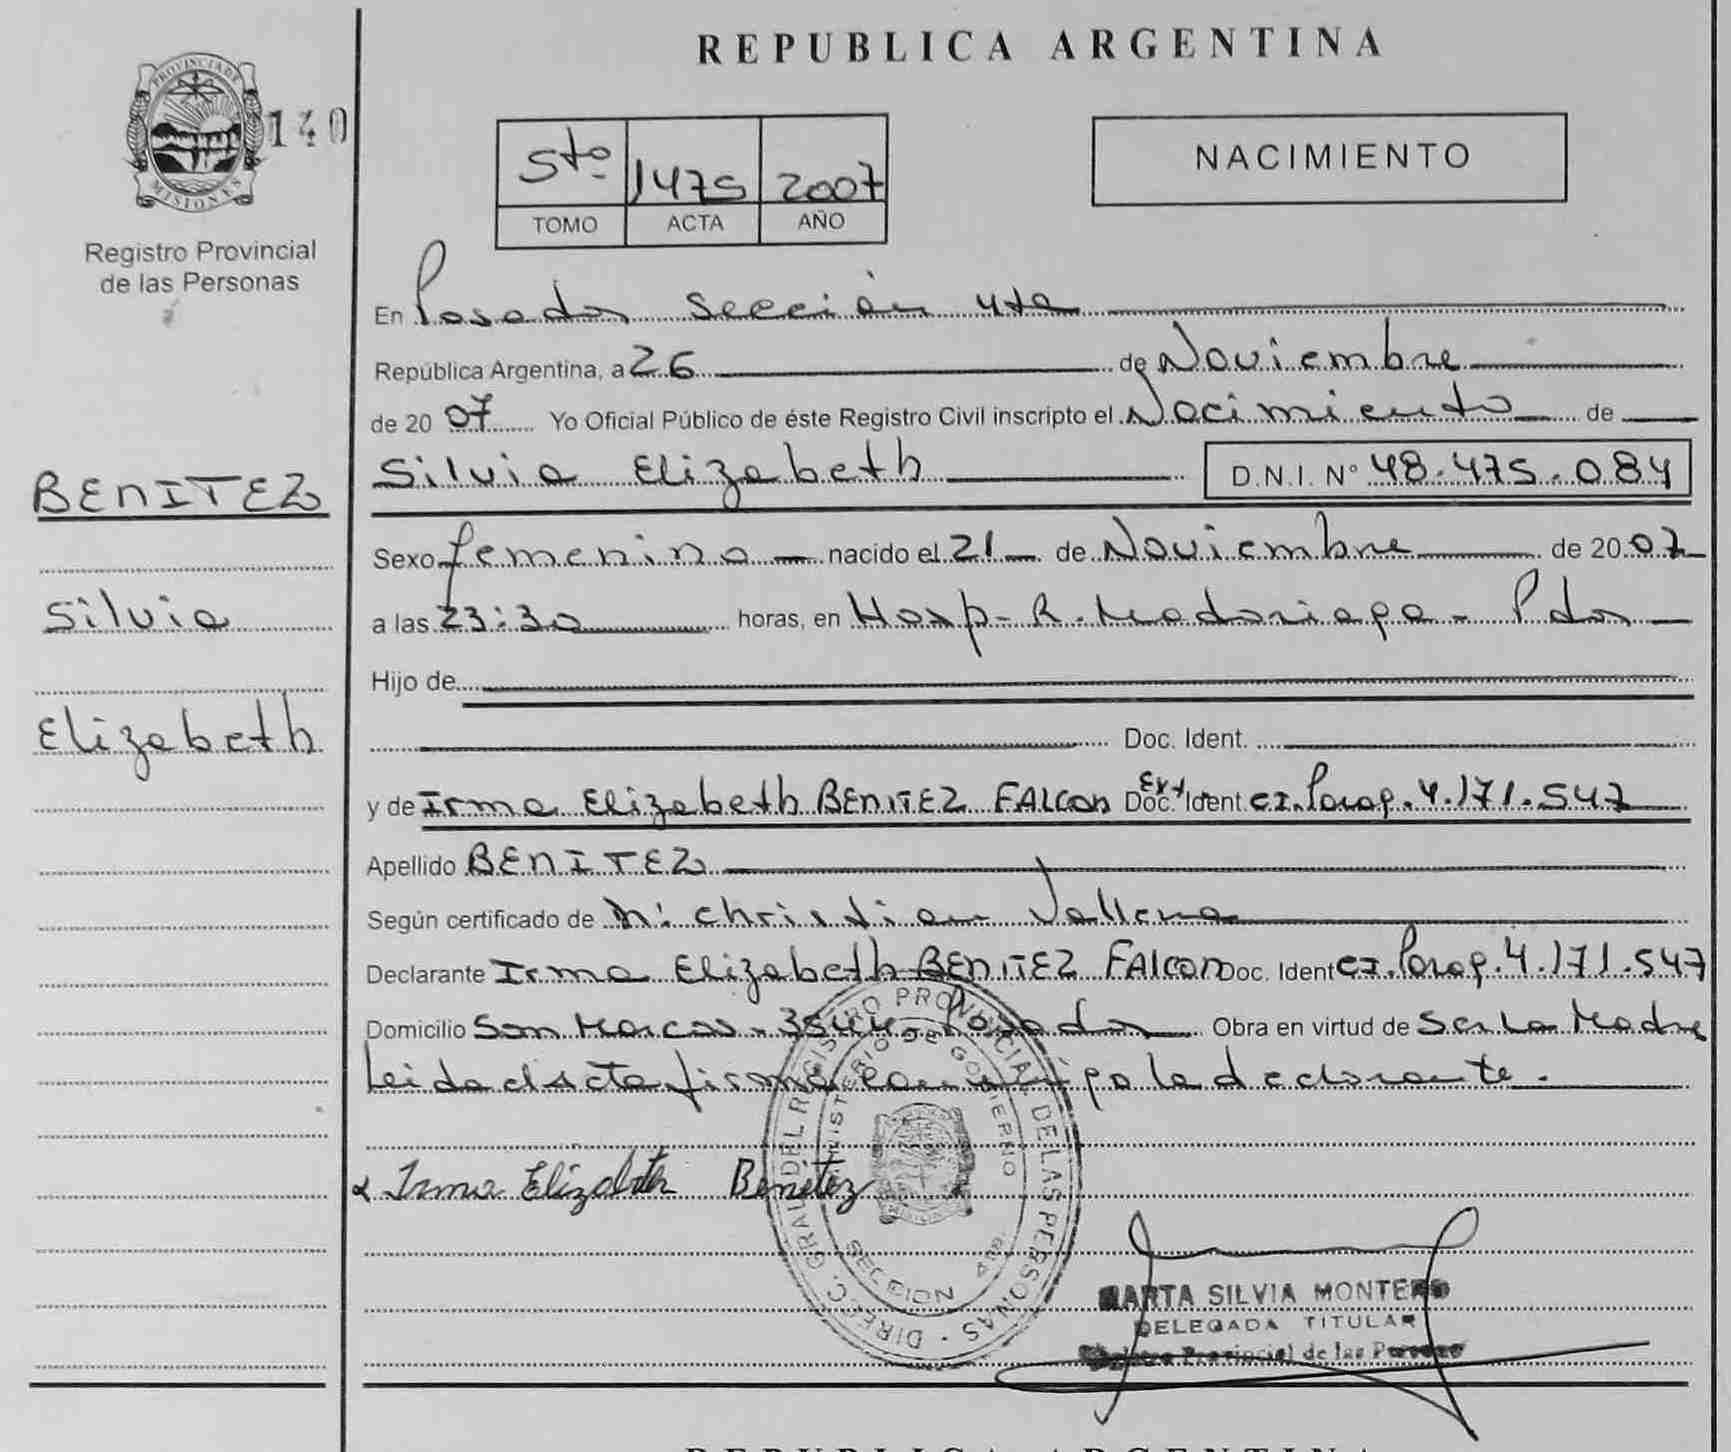 REPUBLICA ARGENTINA
PROVINCIA DE MISIONES
140
Registro Provincial
de las Personas
5to 1475 2007
TOMO ACTA AÑO
NACIMIENTO
En Posadas Sección 4ta
República Argentina, a 26 de Noviembre
de 2007 Yo Oficial Público de éste Registro Civil inscripto el Nacimiento de
Silvia Elizabeth D.N.I. Nº 48.475.084
BENITEZ
Silvia
Elizabeth
Sexo femenino nacido el 21 de Noviembre de 2007
a las 23:30 horas, en Hosp. R. Madariaga - Pdas
Hijo de
Doc. Ident.
y de Irma Elizabeth BENITEZ FALCON Doc. Ident. CI. Parag. 4.171.547
Apellido BENITEZ
Según certificado de Christian Vallena
Declarante Irma Elizabeth BENITEZ FALCON Doc. Ident CI. Parag. 4.171.547
Domicilio San Marcos - Posadas Obra en virtud de Ser La Madre
Leida el Acta firma conmigo la declarante.
Irma Elizabeth Benitez
DIREC. GRAL. DEL REGISTRO PROVINCIAL DE LAS PERSONAS
MINISTERIO DE GOBIERNO
SECCION
MARTA SILVIA MONTERO
DELEGADA TITULAR
Registro Provincial de las Personas
REPUBLICA ARGENTINA